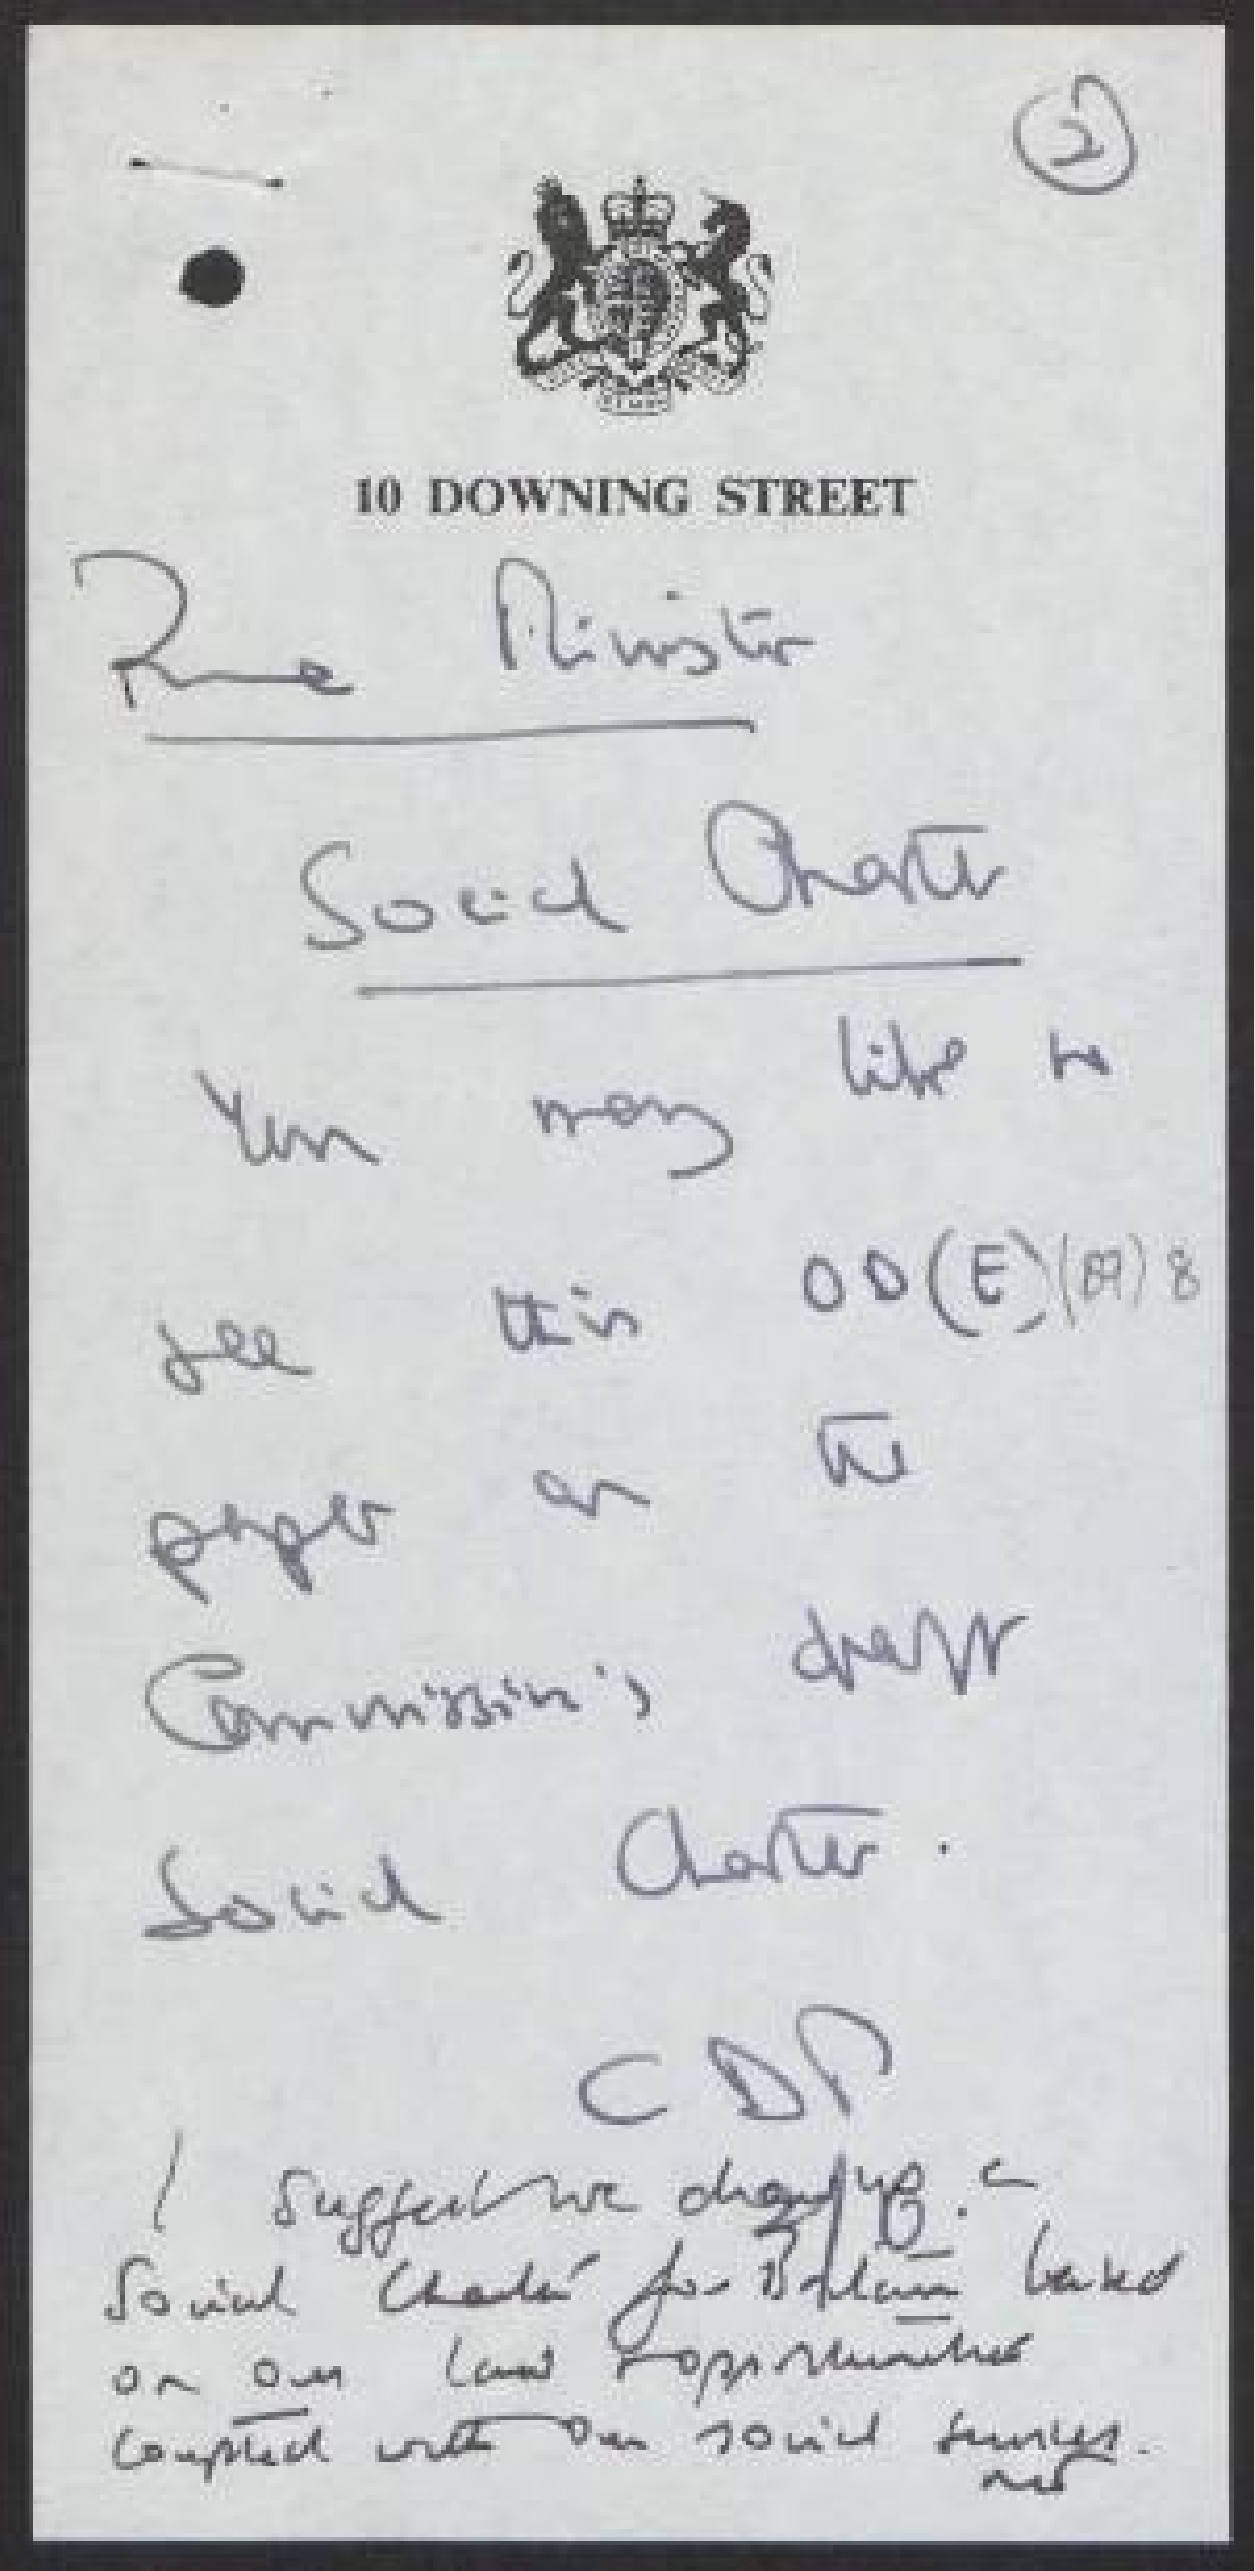 2
10 DOWNING STREET
Prime Minister
Social Charter
You may like to
see this OD(E)(89)8
paper on the
Commission's draft
Social Charter.
CDP
I suggest we draw up a
Social Charter for Britain based
on our laws & opportunities
coupled with our social services.
mt